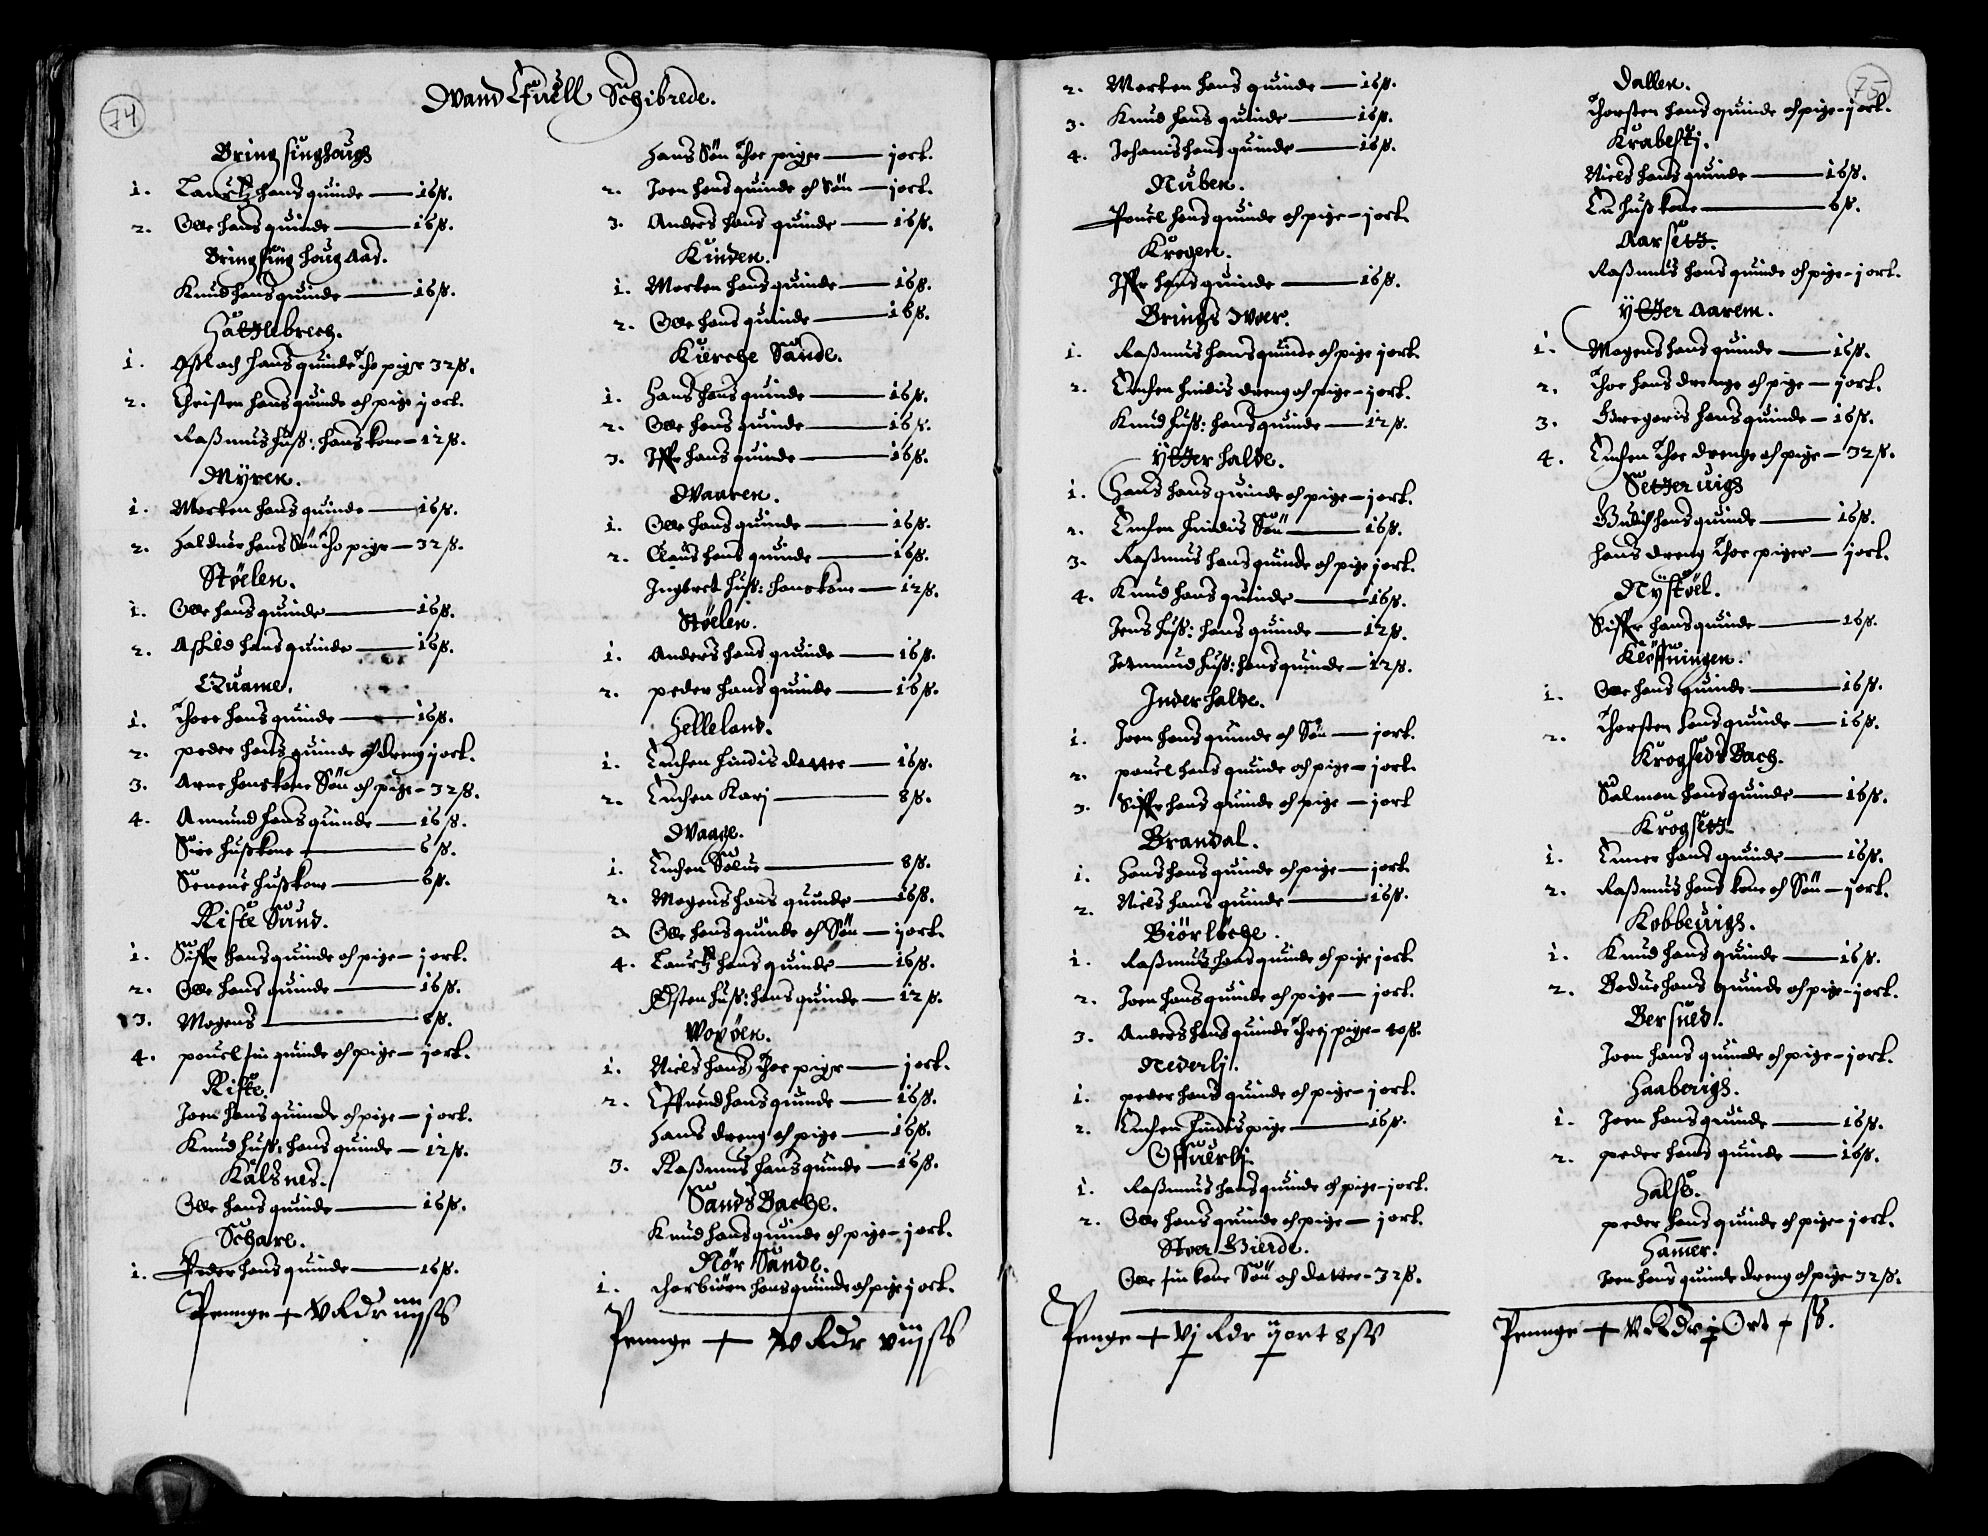 74
Wand Elffuell Schibrede.
Bringsinghoug
1. Lauritz hans quinde — 16 ß.
2. Olle hans quinde — 16 ß.
Bringsing houg Aas.
Knud hans quinde — 16 ß.
Hattlebrech.
1. Aslach hans quinde tho pige 32 ß.
2. Christen hans quinde och pige j ort.
Raßmus Huß: hans kone — 12 ß.
Myren.
1. Morten hans quinde — 16 ß.
2. Halduor hans Søn tho pige — 32 ß.
Støelen.
1. Olle hans quinde — 16 ß.
2. Askild hans quinde — 16 ß.
Quame.
1. Thore hans quinde — 16 ß.
2. peder hans quinde och dreng j ort.
3. Arne hans kone Søn och pige — 32 ß.
4. Amund hans quinde — 16 ß.
Sire Hußkone — 6 ß.
Hußkone — 6 ß.
Riste Sund.
1. Siffr hans quinde och pige — j ort.
2. Olle hans quinde — 16 ß.
3. Mogens — 8 ß.
4. pouel sin quinde och pige — j ort.
Riste.
Joen hans quinde och pige — j ort.
Knud Huß: hans quinde — 12 ß.
Kalsnes.
Olle hans quinde — 16 ß.
Schare.
1. Peder hans quinde — 16 ß.
Penge + V Rdr iiij ß
Hans Søn thoe pige — j ort.
2. Joen hans quinde och Søn — j ort.
3. Anders hans quinde — 16 ß.
Kinden.
1. Morten hans quinde — 16 ß.
2. Olle hans quinde — 16 ß.
Kierche Sande.
1. Hans hans quinde — 16 ß.
2. Olle hans quinde — 16 ß.
3. Iffr hans quinde — 16 ß.
Waaren.
1. Olle hans quinde — 16 ß.
2. Claus hans quinde — 16 ß.
Ingbret Huß: hans kone — 12 ß.
Støelen.
1. Anders hans quinde — 16 ß.
2. peder hans quinde — 16 ß.
Helleland.
1. Enchen hindis datter — 16 ß.
2. Enchen Karj — 8 ß.
Waage.
1. Enchen Solue — 8 ß.
2. Mogens hans quinde — 16 ß.
3. Olle hans quinde och Søn — j ort.
4. Lauritz hans quinde — 16 ß.
Østen Huß: hans quinde — 12 ß.
1. Niels hans thoe pige — j ort.
2. Effuend hans quinde — 16 ß.
Hans dreng och pige — 16 ß.
3. Raßmus hans quinde — 16 ß.
Sands Bache.
Knud hans quinde och pige — j ort.
Nør Sande.
1. Thorbiørn hans quinde och pige j ort.
Penge + V Rdr viij ß
2. Morten hans quinde — 16 ß.
3. Knud hans quinde — 16 ß.
4. Johanis hans quinde — 16 ß.
Nuben.
Pouel hans quinde och pige — j ort.
Krogen.
Iffr hans quinde — 16 ß.
Brings Woer.
1. Raßmus hans quinde och pige j ort.
2. Enchen hindis dreng och pige — j ort.
Knud Huß: hans quinde — 12 ß.
Ytter halde.
1. Hans hans quinde och pige — j ort.
2. Enchen hindis Søn — 16 ß.
3. Raßmus hans quinde och pige j ort.
4. Knud hans quinde — 16 ß.
Jens Huß: hans quinde — 12 ß.
Jermund Huß: hans quinde — 12 ß.
Inder halde.
1. Joen hans quinde och Søn — j ort.
2. pouel hans quinde och pige — j ort.
3. Siffr hans quinde och pige — j ort
Brandal.
1. Hans hans quinde och pige — j ort
2. Niels hans quinde — 16 ß.
Biørløche.
1. Raßmus hans quinde och pige j ort.
2. Joen hans quinde och pige — j ort.
3. Anders hans quinde threj pige — 40 ß.
Nederlj.
1. peder hans quinde och pige — j ort.
2. Enchen hindis pige — 16 ß.
Offuerlj.
1. Raßmus hans quinde och pige — j ort.
2. Olle hans quinde och pige — j ort.
Stoer Gierde.
Olle sin kone Søn och datter — 32 ß.
Penge + Vj Rdr ij ort 8 ß
75
Dallen.
Thorsten hans quinde och pige — j ort.
Krabestj.
Niels hans quinde — 16 ß.
En Hußkone — 6 ß.
Aarsetz.
Raßmus hans quinde och pige — j ort.
Ytter Aarem.
1. Mogens hans quinde — 16 ß.
2. Thoe hans drenge och pige — j ort.
3. Gregoris hans quinde — 16 ß.
4. Enchen thoe drenge och pige — 32 ß.
Setteruigh
hans quinde — 16 ß.
hans dreng thoe piger — j ort.
Nystøel.
Siffr hans quinde — 16 ß.
Kløffningen.
1. Olle hans quinde — 16 ß.
2. Thorsten hans quinde — 16 ß.
Krogseds Bach.
Salmon hans quinde — 16 ß.
Krogsetz.
1. Enner hans quinde — 16 ß.
2. Raßmus hans kone och Søn — j ort.
Kobbeuigh.
1. Knud hans quinde — 16 ß.
2. Bodue hans quinde och pige — j ort.
Bersued.
Joen hans quinde och pige — j ort.
Haaberigh.
1. Joen hans quinde — 16 ß.
2. peder hans quinde — 16 ß.
Halse.
peder hans quinde och pige — j ort.
Hamer.
Joen hans quinde dreng och pige 32 ß.
Penge + V Rdr j Ort ß.